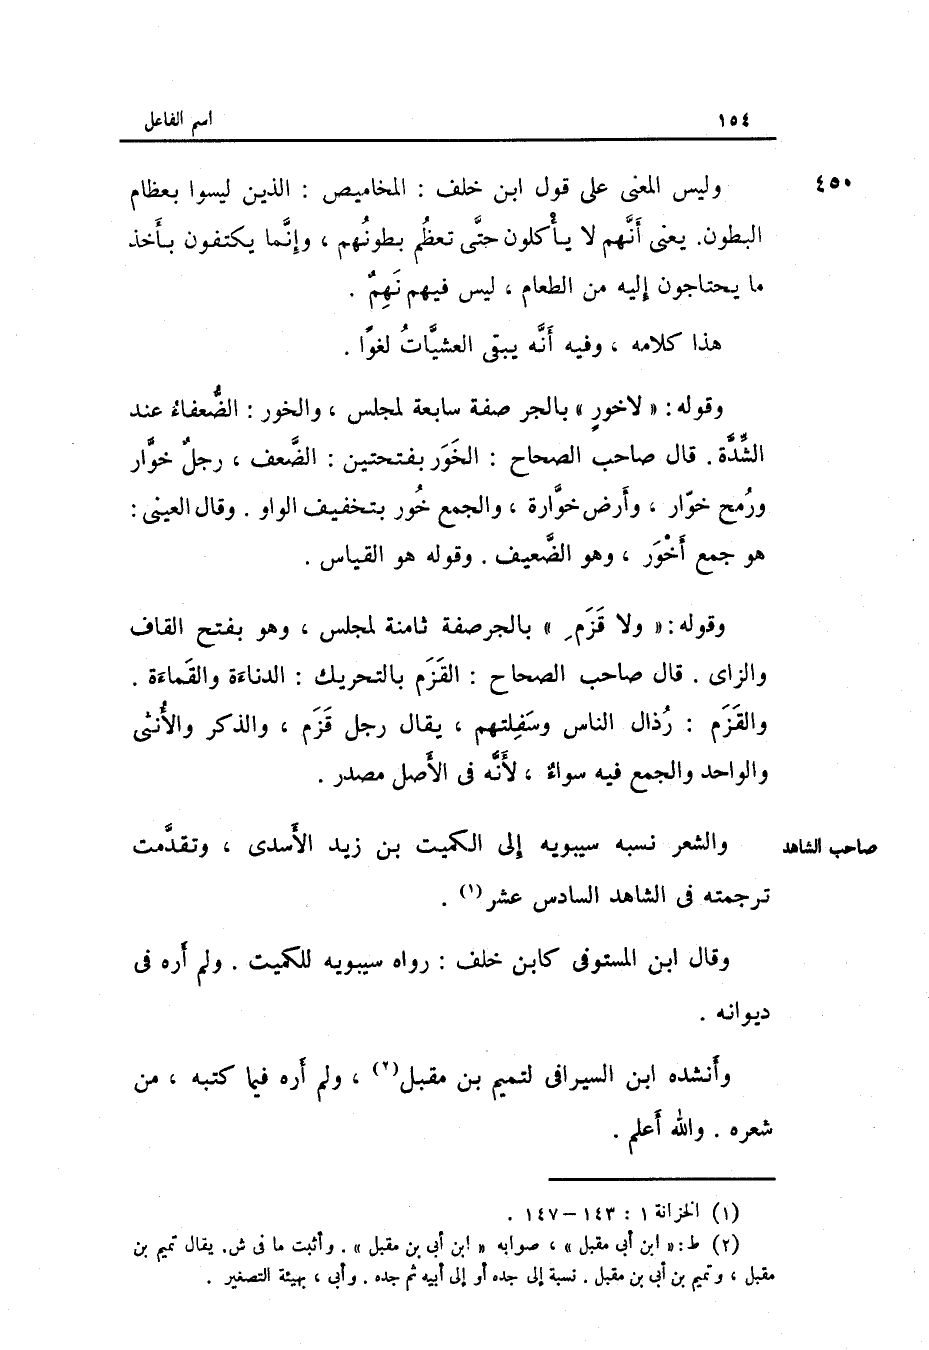 ١٥٤
اسم الفاعل
٤٥٠
وليس المعنى على قول ابن خلف : المخاميص : الذين ليسوا بعظام
البطون. يعنى أَنَّهم لا يأْكلون حتَّى تعظُم بطونُهم ، وإنَّما يكتفون بأَخذ
ما يحتاجون إليه من الطعام ، ليس فيهم نَهِمٌ .
هذا كلامه ، وفيه أَنَّه يبقى العشيَّاتُ لغوًا .
وقوله: « لاخورٍ » بالجر صفة سابعة لمجلس ، والخور : الضُّعفاءُ عند
الشِّدَّة . قال صاحب الصحاح : الخَوَر بفتحتين : الضَّعف ، رجلٌ خوَّار
ورُمح خوّار ، وأَرض خوَّارة ، والجمع خُور بتخفيف الواو . وقال العينى :
هو جمع أَخْوَر ، وهو الضَّعيف . وقوله هو القياس .
وقوله: « ولا قَزَمِ » بالجر صفة ثامنة لمجلس ، وهو بفتح القاف
والزاى . قال صاحب الصحاح : القَزَم بالتحريك : الدناءَة والقَماءَة .
والقَزَم : رُذال الناس وسَفِلتهم ، يقال رجل قَزَم ، والذكر والأُنثى
والواحد والجمع فيه سواءٌ ، لأَنَّه فى الأَصل مصدر .
صاحب الشاهد
والشعر نسبه سيبويه إلى الكميت بن زيد الأَسدى ، وتقدَّمت
ترجمته فى الشاهد السادس عشر(١) .
وقال ابن المستوفى كابن خلف : رواه سيبويه للكميت . ولم أَره فى
ديوانه .
وأَنشده ابن السيرافى لتميم بن مقبل(٢) ، ولم أَره فيما كتبه ، من
شعره . والله أَعلم .
(١) الخزانة ١ : ١٤٣ – ١٤٧ .
(٢) ط : « ابن أبى مقبل » ، صوابه « ابن أبى بن مقبل » . وأثبت ما فى ش. يقال تميم بن
مقبل ، وتميم بن أبى بن مقبل . نسبة إلى جده أو إلى أبيه ثم جده . وأبى ، بهيئة التصغير .